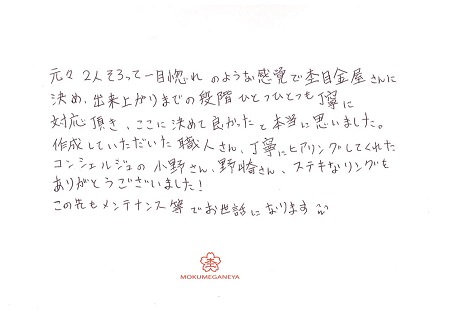 元々 2人そろって一目惚れ のような感覚で杢目金屋さんに
決め、出来上がりまでの段階 ひとつひとつも丁寧に
対応頂き、ここに決めて良かったと本当に思いました。
作成していただいた職人さん、丁寧にヒアリングしてくれた
コンシェルジュの 小野さん、野崎さん、ステキなリングを
ありがとうございました!
この先もメンテナンス等でお世話になります
杢
MOKUMEGANEYA